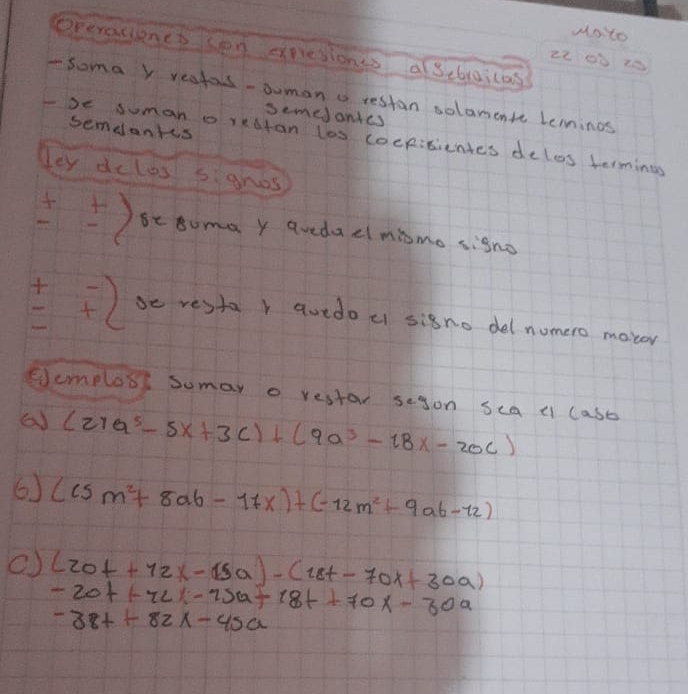 Operaciones con expresiones algebraicas
Mayo
22 05 23
- Soma y restas - suman o restan solamente terminos
semejantes
- se suman o restan los coefisientes delos terminos
semejantes
ley delos signos
+ +
- - ) se suma y queda el mismo signo
+ -
- + ) se resta y quedo el signo del numero mayor
Ejemplos: Sumar o restar segon sea el caso
a) (21a⁵ - 5x + 3c) + (9a³ - 18x - 20c)
b) (15m² + 8ab - 11x) + (-12m² + 9ab - 12)
c) (20t + 12x - 15a) - (18t - 70x + 30a)
- 20t + 12x - 15a + 18t + 70x - 30a
- 38t + 82x - 45a